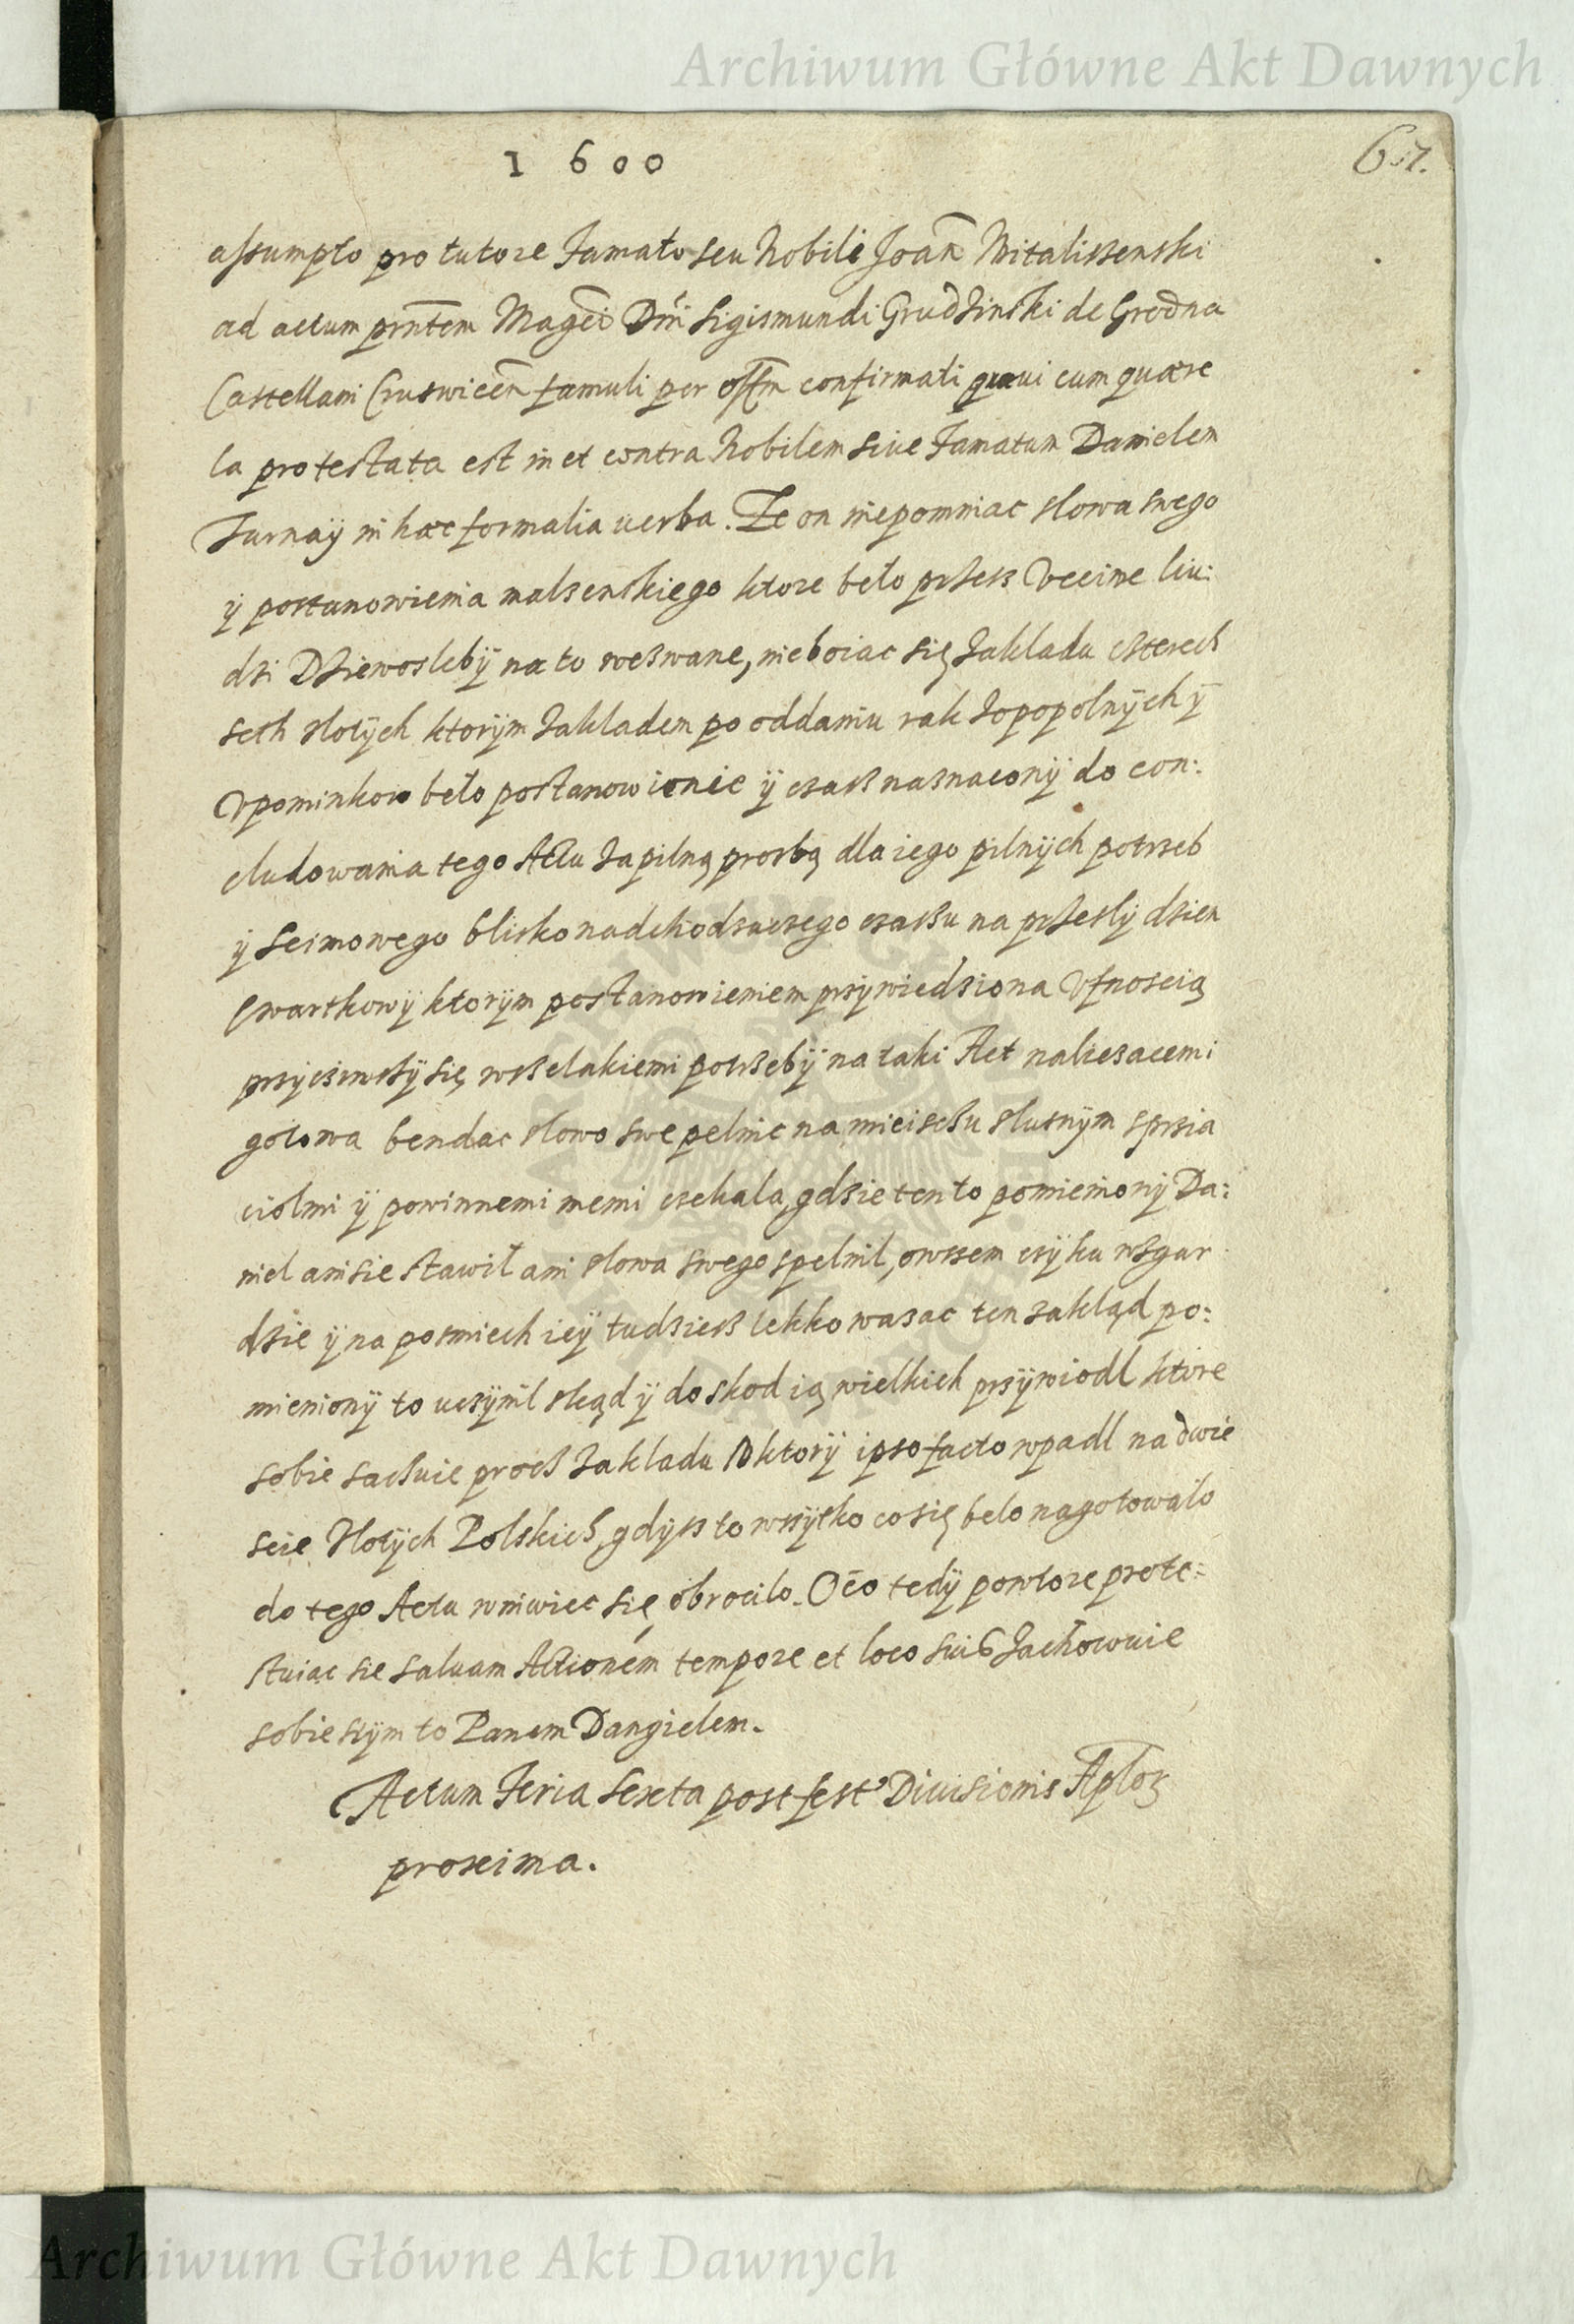 Archiwum Główne Akt Dawnych
1600
assumpto pro tutore Famato seu Nobili Joan̄ Witalissenski
ad actum prn̄tem Magci Dn̄i Sigismundi Grudzinski de Grodna
Castellani Cruswicen̄ famuli per off̄m confirmati graui cum quære
la protestata est in et contra Nobilem siue Famatum Danielem
Turnaÿ in hæc formalia uerba. Ze on niepomniac slowa swego
ÿ postanowienia malzenskiego ktore beło przess Vccziue liu:
dzi Dziewoslebÿ na to wezwane, nieboiac się zakladu czterech
seth zlotÿch ktorÿm zakladem po oddaniu rak ÿ
Vpominkow beło postanowienie ÿ czass naznaconÿ do con:
cludowania tego Actu za pilną prosbą dla iego pilnÿch potrzeb
ÿ Seimowego blisko nadchodzaczego czassu na przeslÿ dzien
Czwartkowÿ ktorÿm postanowieniem przÿwiedziona Vfnoscią
się wsselakiemi potrzebÿ na taki Act nalezacemi
gotowa bendac slowo swe pelnic na mieisczu slusnÿm s przia
ciolmi ÿ powinnemi memi czekala, gdzie ten to pomienionÿ Da:
niel ani sie stawił ani slowa swego spelnil, owssem czÿ ku wzgar
dzie ÿ na posmiech ieÿ tudziess lekko wazac ten zakląd po:
mienionÿ to uczÿnil skąd ÿ do skod ią wielkich przÿwiodl ktore
sobie sacuie procz zakladu w ktorÿ ipso facto wpadl na dwie
scie zlotÿch Polskich, gdÿss to wszÿtko co się beło nagotowalo
do tego Actu wniwiec się obrocilo. O co tedÿ powtore prote:
stuiac sie saluam Actionem tempore et loco suis zachowuie
sobie stÿm to Panem Dangielem.
Actum Feria Sexta post fest' Diuisionis Ap̄loꝝ
proxima.
Archiwum Główne Akt Dawnych